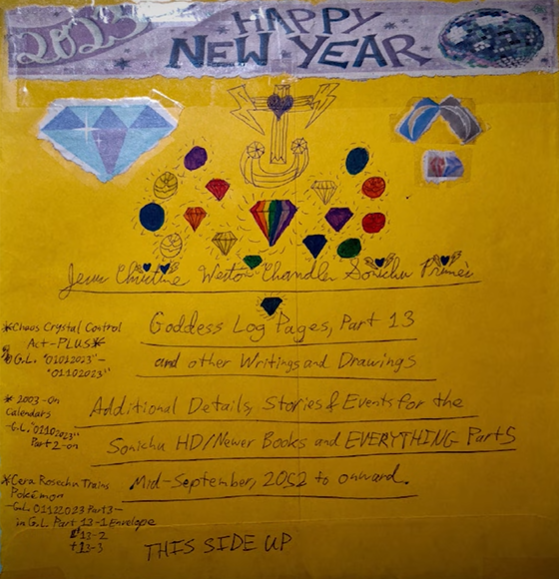 2023
HAPPY
NEW YEAR
Jesus Christine Weston Chandler Sonichu Prime
Goddess Log Pages, Part 13
and other Writings and Drawings
Additional Details, Stories & Events for the
Sonichu HD/Newer Books and EVERYTHING Part 5
Mid-September, 2052 to onward.
*Chaos Crystal Control
Act-PLUS*
G.L. "01012023"-
"01102023"
* 2003-on
Calendars
-G.L. "01102023"
Part 2-on
*Cera Rosechu Trains
Pokémon
-G.L. 01122023 Part 3-
in G.L. Part 13-1 Envelope
13-2
+13-3
THIS SIDE UP